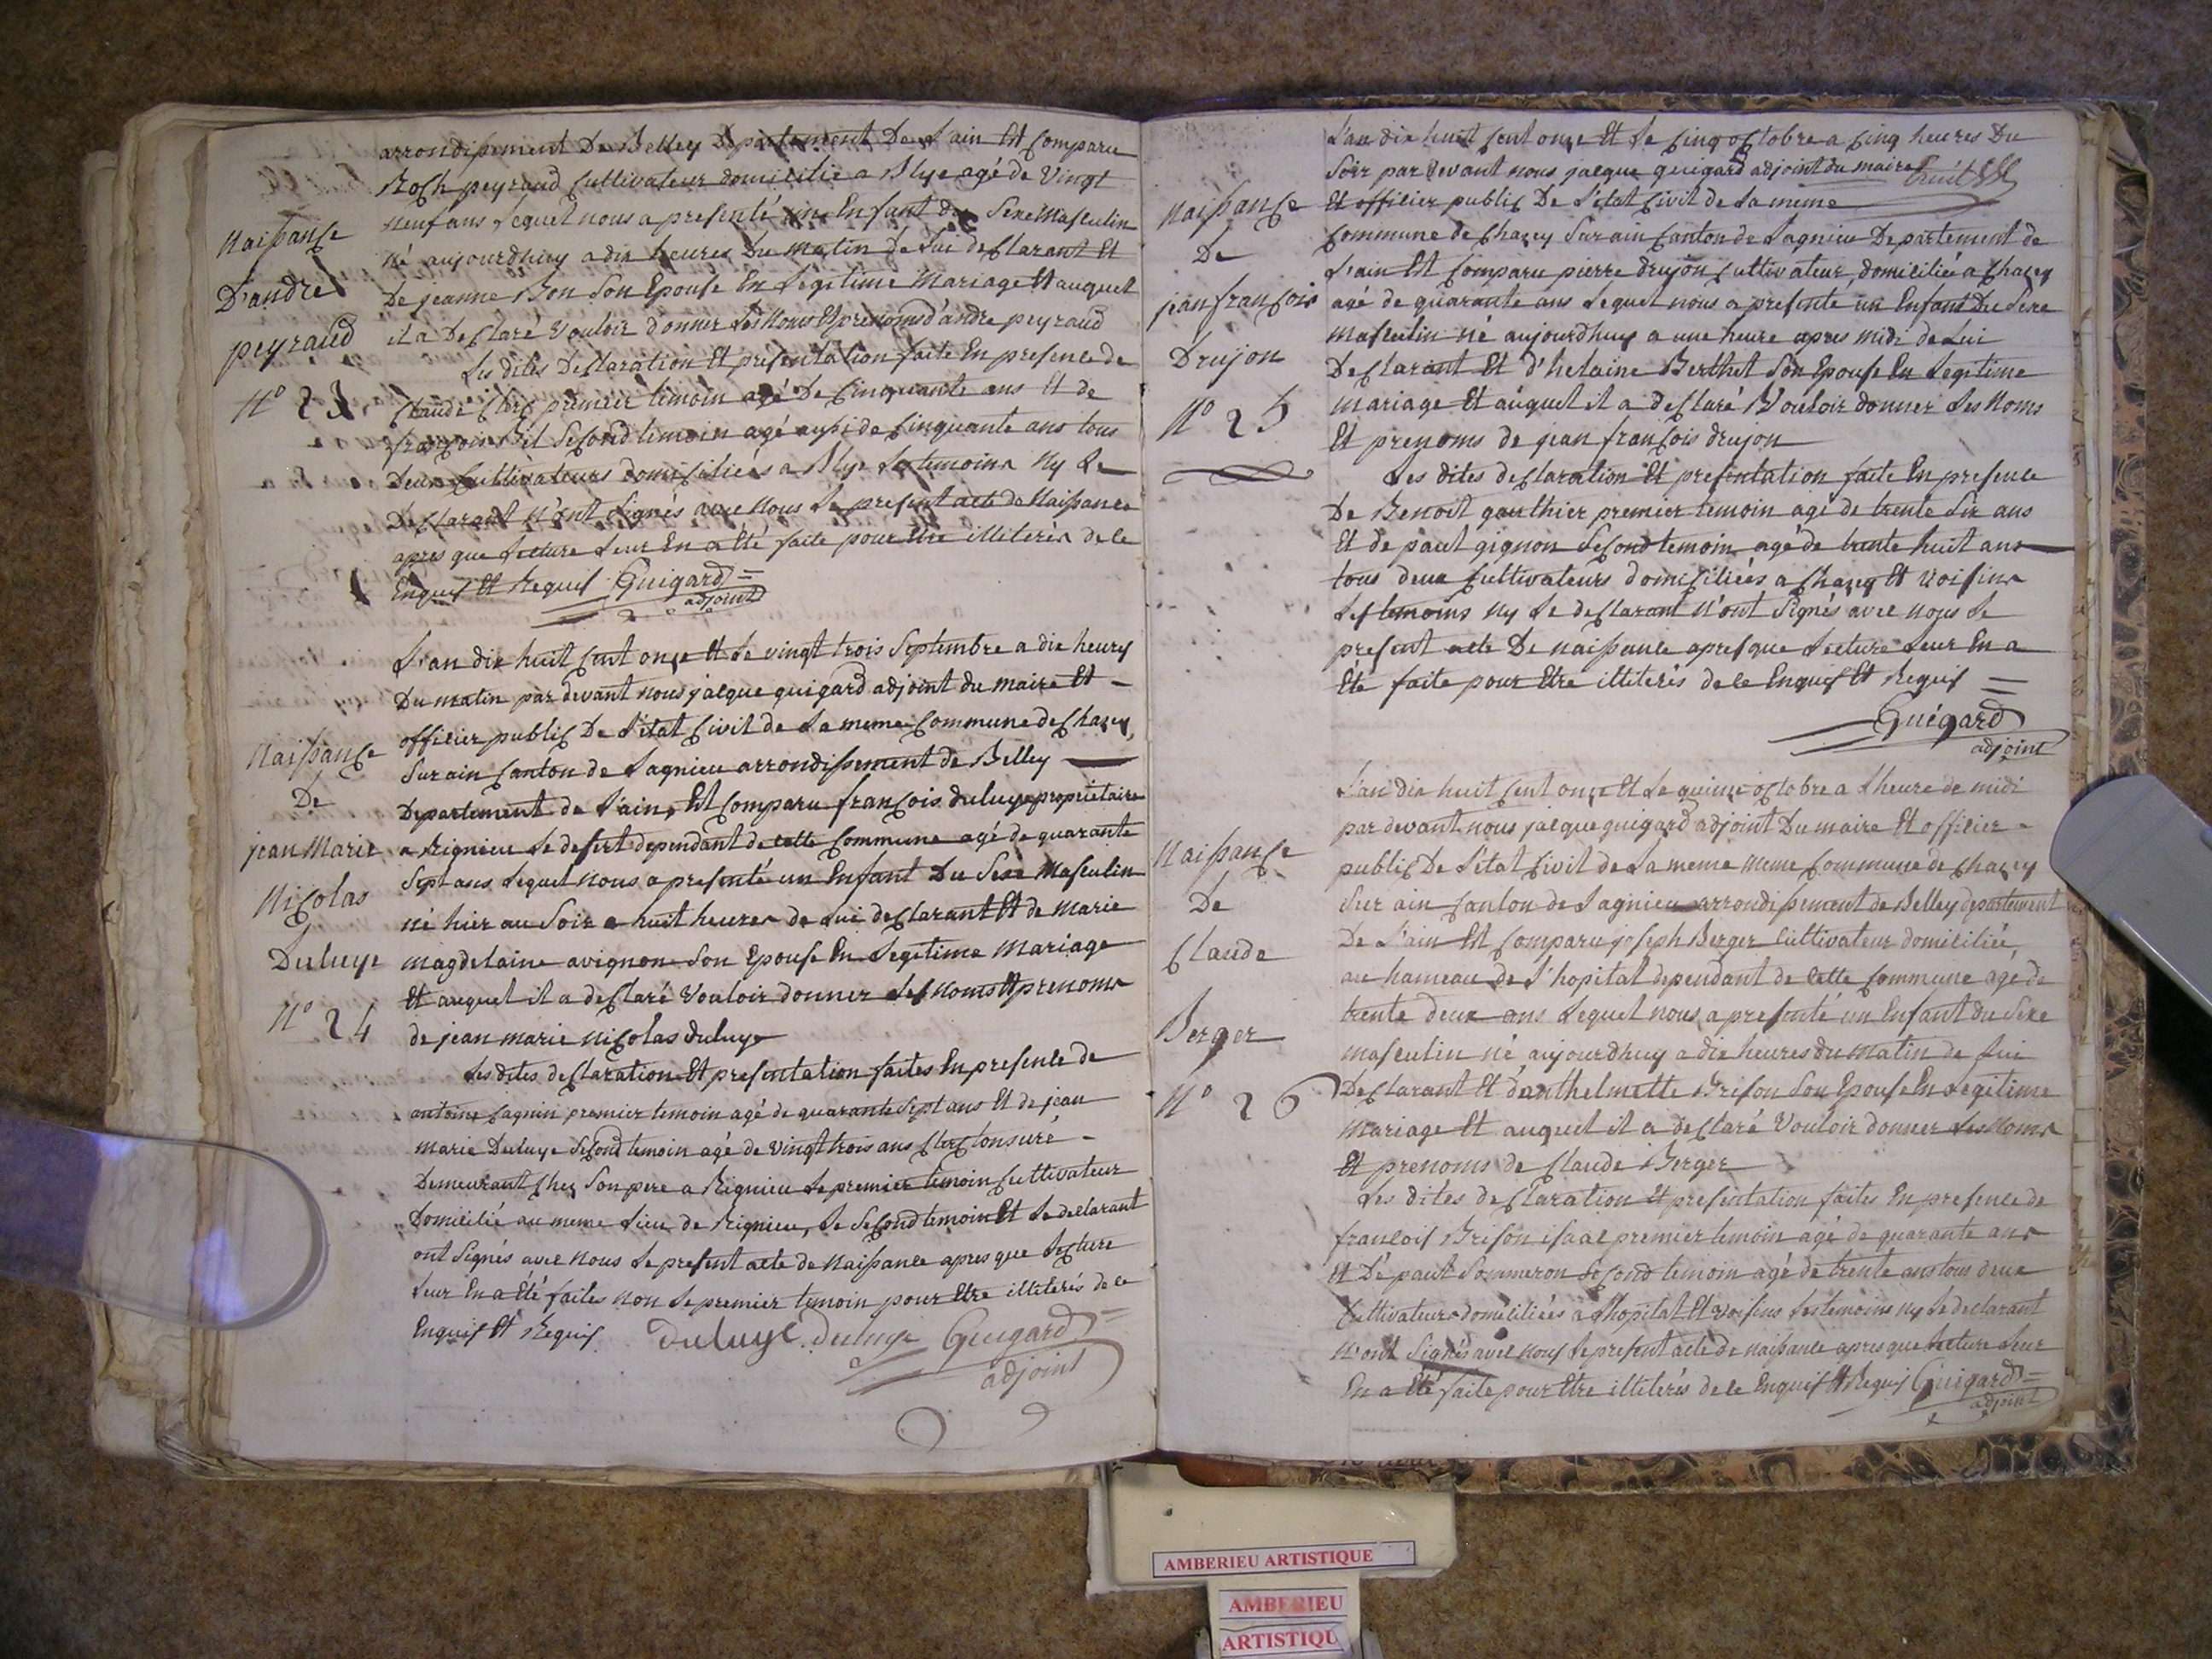 arrondissement De Belley Departement De L'ain Est Comparu
Roch peyraud Cultivateur domicilié a Blye agé de Vingt
neuf ans Lequel nous a presenté un Enfant du Sexe Masculin
né aujourdhuy a dix heures Du matin de Lui declarant Et
De jeanne Bon Son Epouse En Legitime Mariage Et auquel
il a Declaré Vouloir donner Les Noms Et prenoms d'andre peyraud
Les dites Declaration Et presentation faite En presence de
Claude Clerc premier temoin agé De Cinquante ans Et de
françois Bel Second temoin agé aussi de Cinquante ans tous
Deux Cultivateurs domiciliées a Blye Les temoins Ny Le
Declarant N'ont Signés avec Nous Le present acte de Naissance
apres que Lecture Leur En a Eté faite pour Etre illiterés de le
Enquis Et Requis Guigard
adjoint
Naissance
D'andre
peyraud
N° 23
L'an dix huit Cent onze Et Le vingt trois Septembre a dix heures
Du matin par devant nous jacque guigard adjoint du maire Et
officier public De L'état Civil de La meme Commune de Chazey
Sur ain Canton de Lagnieu arrondissement de Belley
Departement de L'ain, Est Comparu françois duluye propriétaire
a Rignieu Le desert dependant de cette Commune agé de quarante
Sept ans Lequel nous a presenté un Enfant Du Sexe Masculin
né hier au Soir a huit heures de Lui declarant Et de Marie
magdelaine avignon Son Epouse En Legitime Mariage
Et auquel il a declaré Vouloir donner Les Noms Et prenoms
de jean marie nicolas duluye
Les dites declaration Et presentation faites En presence de
antoine Cagnin premier temoin agé de quarante Sept ans Et de jean
marie Duluye Second temoin agé de Vingt trois ans Clerc tonsuré
Demeurant Chez Son pere a Rignieu Le premier temoin Cultivateur
Domicilié au meme Lieu de Rignieu, Le Second temoin Et Le declarant
ont Signés avec Nous Le present acte de Naissance apres que Lecture
Leur En a Eté faites Non Le premier temoin pour Etre illiterés de le
Enquis Et Requis Duluye Duluye Guigard
adjoint
Naissance
De
jean Marie
Nicolas
Duluye
N° 24
L'an dix huit Cent onze Et Le Cinq octobre a Cinq heures Du
Soir par devant nous jacque guigard adjoint du maire
Et officier public De L'état Civil de La meme
Commune de Chazey Sur ain Canton de Lagnieu Departement de
L'ain Est Comparu pierre drujon Cultivateur domiciliée a Chazey
agé de quarante ans Lequel nous a presenté un Enfant Du Sexe
Masculin né aujourdhuy a une heure apres midi de Lui
Declarant Et d'helaine Berthet Son Epouse En Legitime
Mariage Et auquel il a declaré Vouloir donner Les Noms
Et prenoms de jean françois drujon
Les dites declaration Et presentation faite En presence
De Benoit gauthier premier temoin agé de trente Six ans
Et de paul gignon Second temoin agé de trente huit ans
tous deux Cultivateurs domiciliées a Chazey Et Voisins
Les temoins Ny Le declarant N'ont Signés avec Nous Le
present acte De naissance apres que Lecture Leur En a
Eté faite pour Etre illiterés de le Enquis Et Requis
Guigard
adjoint
Naissance
De
jean françois
Drujon
N° 25
L'an dix huit Cent onze Et Le quinze octobre a L'heure de midi
par devant nous jacque guigard adjoint Du maire Et officier
public De L'état Civil de La meme meme Commune de Chazey
Sur ain Canton de Lagnieu arrondissement de Belley departement
De L'ain Est Comparu joseph Berger Cultivateur domiciliée
au hameau de L'hopital dependant de Cette Commune agé de
trente deux ans Lequel nous a presenté un Enfant du Sexe
Masculin né aujourdhuy a dix heures du Matin de Lui
Declarant Et d'anthelmette Brison Son Epouse En Legitime
Mariage Et auquel il a declaré Vouloir donner Les Noms
Et prenoms de Claude Berger
Les dites declaration Et presentation faites En presence de
francois Brison isaac premier temoin agé de quarante ans
Et De paul Sommeron Second temoin agé de trente ans tous deux
Cultivateurs domiciliées a L'hopital Et voisins Les temoins Ny Le declarant
N'ont Signés avec Nous Le present acte de naissance apres que Lecture Leur
En a Eté faite pour Etre illiterés de le Enquis Et Requis Guigard
adjoint
Naissance
De
Claude
Berger
N° 26
AMBERIEU ARTISTIQUE
AMBERIEU
ARTISTIQU